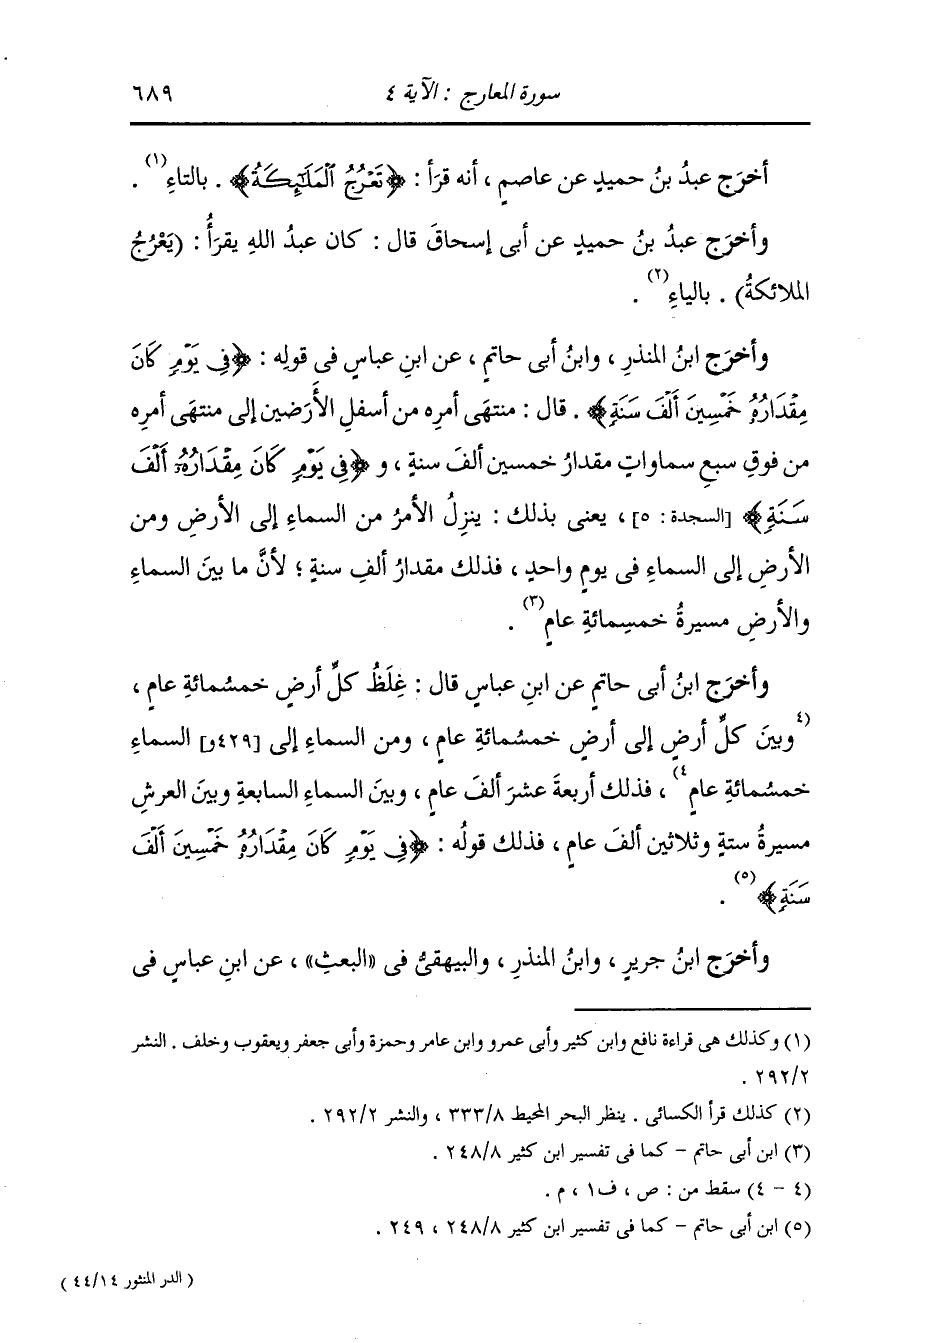 سورة المعارج : الآية ٤ ٦٨٩
أخرَج عبدُ بنُ حميدٍ عن عاصمٍ ، أنه قرَأ : ﴿تَعْرُجُ ٱلْمَلَـٰٓئِكَةُ﴾ . بالتاءِ(١) .
وأخرَج عبدُ بنُ حميدٍ عن أبى إسحاقَ قال : كان عبدُ اللهِ يقرَأُ : (يَعْرُجُ
الملائكةُ) . بالياءِ(٢) .
وأخرَج ابنُ المنذرِ ، وابنُ أبى حاتمٍ ، عن ابنِ عباسٍ فى قولِه : ﴿فِى يَوْمٍ كَانَ
مِقْدَارُهُۥ خَمْسِينَ أَلْفَ سَنَةٍ﴾ . قال : منتهَى أمرِه من أسفلِ الأَرَضين إلى منتهَى أمرِه
من فوقِ سبعِ سماواتٍ مقدارُ خمسين ألفَ سنةٍ ، و ﴿فِى يَوْمٍ كَانَ مِقْدَارُهُۥٓ أَلْفَ
سَنَةٍ﴾ [السجدة : ٥] ، يعنى بذلك : ينزِلُ الأمرُ من السماءِ إلى الأرضِ ومن
الأرضِ إلى السماءِ فى يومٍ واحدٍ ، فذلك مقدارُ ألفِ سنةٍ ؛ لأنَّ ما بينَ السماءِ
والأرضِ مسيرةُ خمسِمائةِ عامٍ(٣) .
وأخرَج ابنُ أبى حاتمٍ عن ابنِ عباسٍ قال : غِلَظُ كلِّ أرضٍ خمسُمائةِ عامٍ ،
(٤وبينَ كلِّ أرضٍ إلى أرضٍ خمسُمائةِ عامٍ ، ومن السماءِ إلى [٤٢٩و] السماءِ
خمسُمائةِ عامٍ٤) ، فذلك أربعةَ عشرَ ألفَ عامٍ ، وبينَ السماءِ السابعةِ وبينَ العرشِ
مسيرةُ ستةٍ وثلاثين ألفَ عامٍ ، فذلك قولُه : ﴿فِى يَوْمٍ كَانَ مِقْدَارُهُۥ خَمْسِينَ أَلْفَ
سَنَةٍ﴾(٥) .
وأخرَج ابنُ جريرٍ ، وابنُ المنذرِ ، والبيهقىُّ فى «البعثِ» ، عن ابنِ عباسٍ فى
(١) وكذلك هى قراءة نافع وابن كثير وأبى عمرو وابن عامر وحمزة وأبى جعفر ويعقوب وخلف . النشر
٢٩٢/٢ .
(٢) كذلك قرأ الكسائى . ينظر البحر المحيط ٣٣٣/٨ ، والنشر ٢٩٢/٢ .
(٣) ابن أبى حاتم – كما فى تفسير ابن كثير ٢٤٨/٨ .
(٤ – ٤) سقط من : ص ، ف١ ، م .
(٥) ابن أبى حاتم – كما فى تفسير ابن كثير ٢٤٨/٨ ، ٢٤٩ .
( الدر المنثور ٤٤/١٤ )